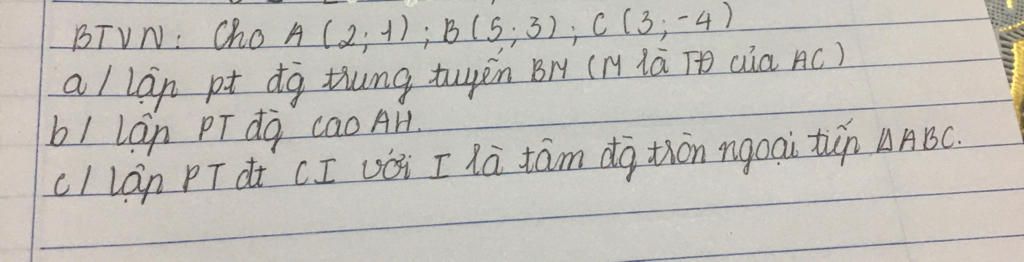 BTVN: Cho A (2; 1); B (5; 3); C (3; -4)
a/ lập pt đg̀ trung tuyến BM (M là TĐ của AC)
b/ lập PT đg̀ cao AH.
c/ lập PT đt CI với I là tâm đg̀ tròn ngoại tiếp ΔABC.